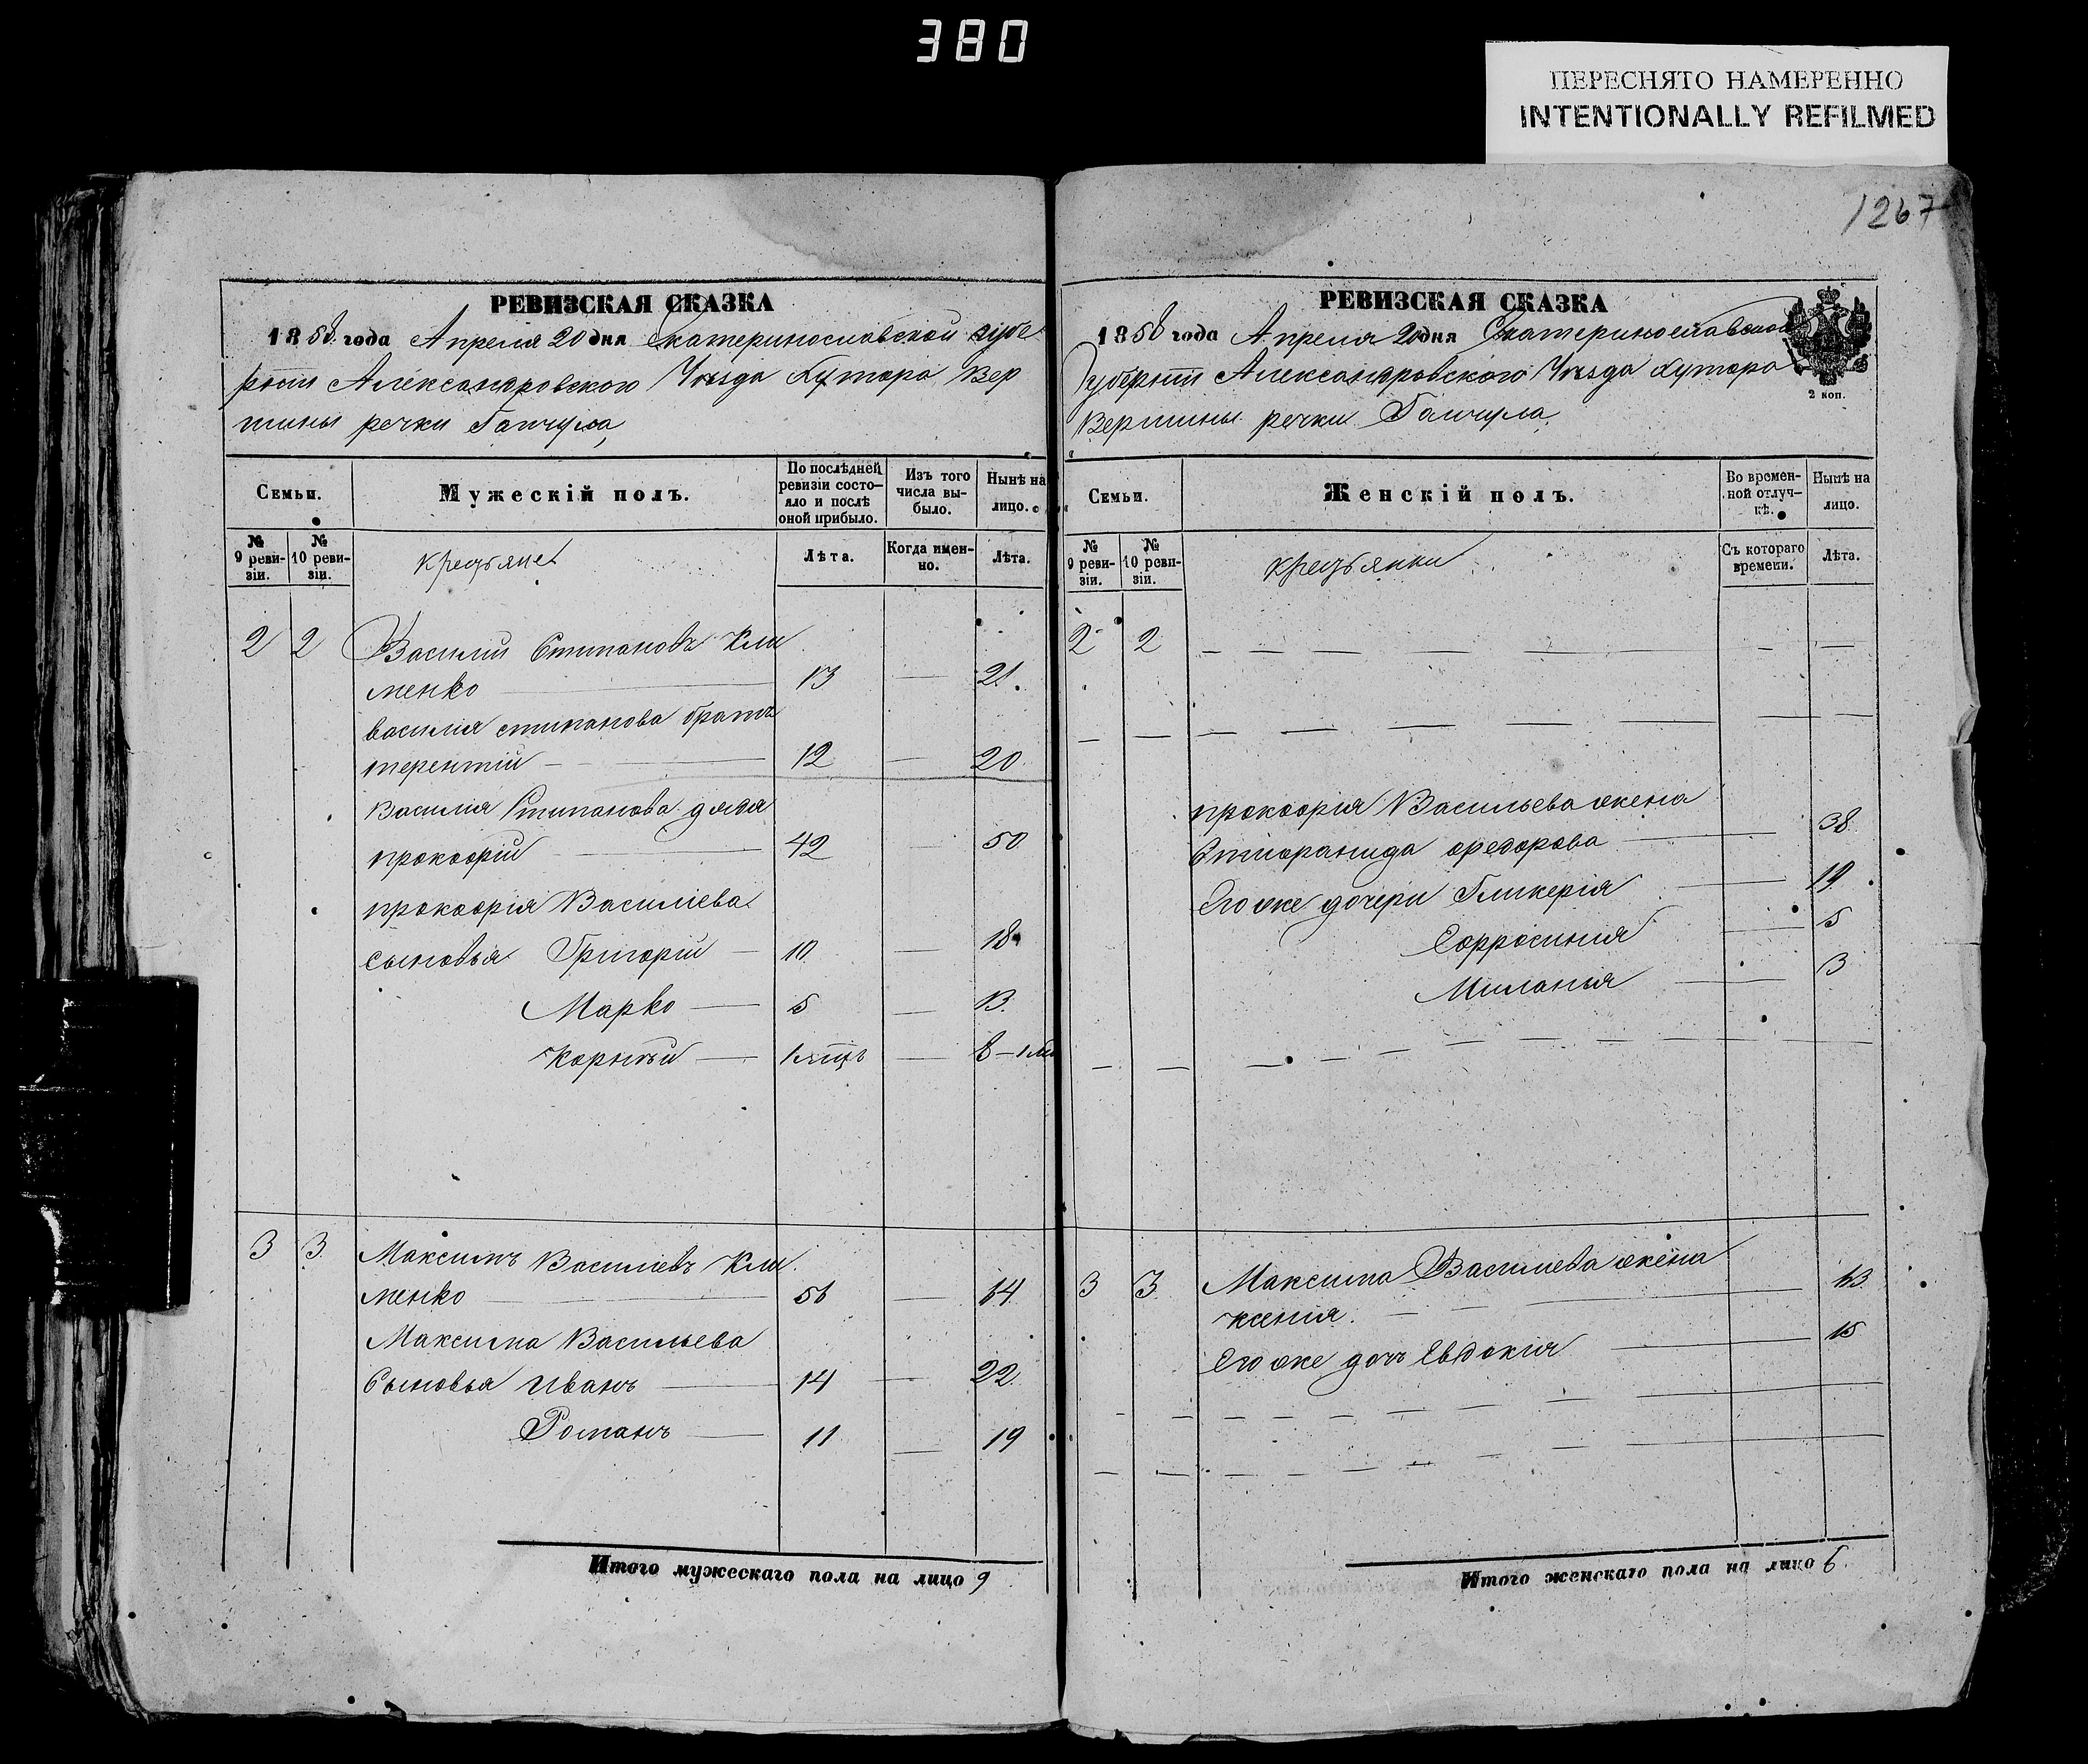 380
ПЕРЕСНЯТО НАМЕРЕННО
INTENTIONALLY REFILMED
1267
РЕВИЗСКАЯ СКАЗКА
1858 года Апреля 20 дня Екатеринославской губе
рніи Александровского Уѣзда Хутора Вер
шины речки Гайчула,
Семьи.
Мужескій полъ.
По послѣдней ревизіи состояло и послѣ оной прибыло.
Изъ того числа выбыло.
Нынѣ на лицо.
№ 9 ревизіи.
№ 10 ревизіи.
крестьяне
Лѣта.
Когда именно.
Лѣта.
2 2 Василий Стипановъ Кли
менко 13 21.
василия стипанова братъ
терентій 12 20
Василия Стипанова дядя
прокофій 42 50
прокофія Василіева
сыновья Григорій 10 18
Марко 5 13.
корнѣй 1 мѣц 8 - 1 м
3 3 Максимъ Василіевъ Кли
менко 56 64
Максима Васильева
Сыновья Иванъ 14 22
Романъ 11 19
Итого мужескаго пола на лицо 9
РЕВИЗСКАЯ СКАЗКА
1858 года Апреля 20 дня Екатеринославской
Губерніи Александровского Уѣзда Хутора
Вершины речки Гайчула.
2 коп.
Семьи.
Женскій полъ.
Во временной отлучкѣ.
Нынѣ на лицо.
№ 9 ревизіи.
№ 10 ревизіи.
крестьянки
Съ котораго времени.
Лѣта.
2 2
прокофія Васильева жена
Стифанида федорова 38
Его же дочери Гликерія 19
Ефросинія 5
Миланья 3
3 3 Максима Василиева жена
ксенія. 63
Его же дочь Евдокія 15
Итого женскаго пола на лицо 6